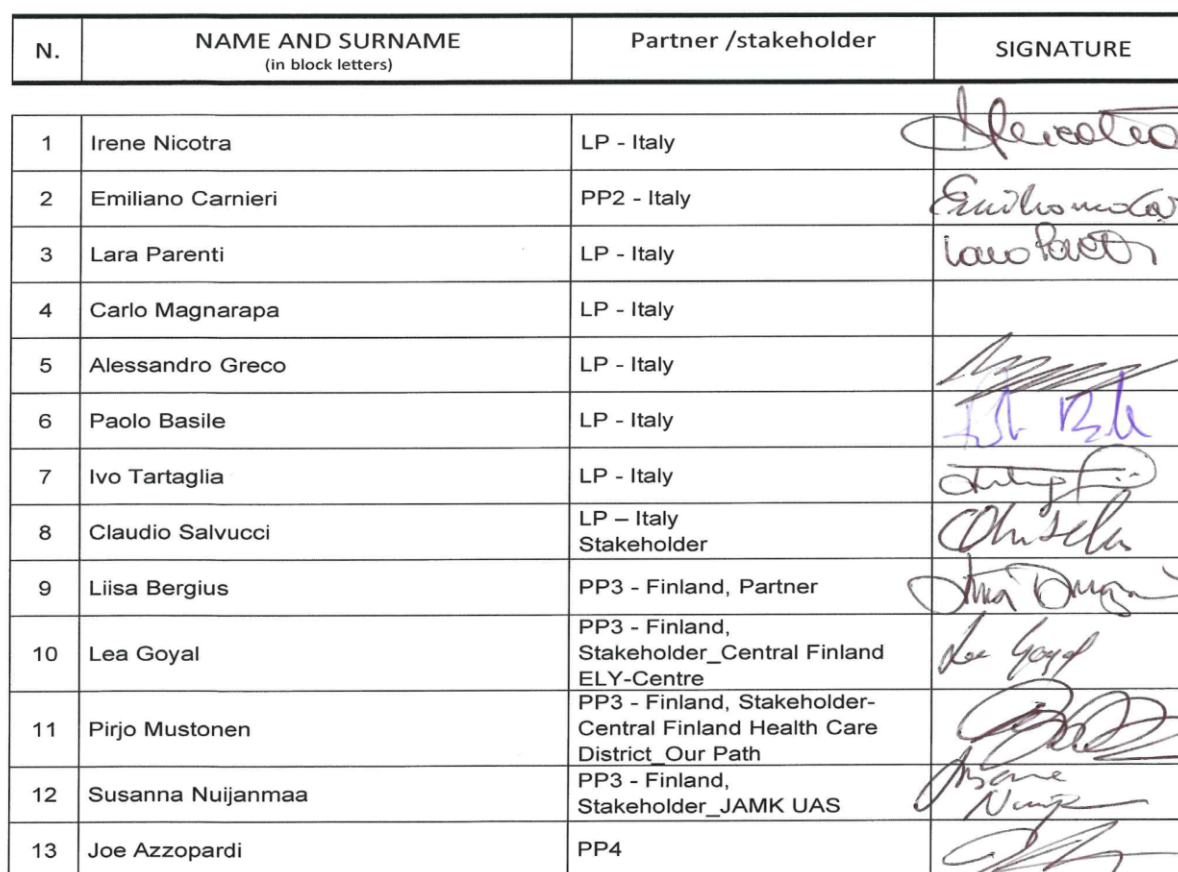 N. NAME AND SURNAME Partner /stakeholder SIGNATURE
(in block letters)
1 Irene Nicotra LP - Italy
2 Emiliano Carnieri PP2 - Italy
3 Lara Parenti LP - Italy
4 Carlo Magnarapa LP - Italy
5 Alessandro Greco LP - Italy
6 Paolo Basile LP - Italy
7 Ivo Tartaglia LP - Italy
8 Claudio Salvucci LP – Italy
Stakeholder
9 Liisa Bergius PP3 - Finland, Partner
10 Lea Goyal PP3 - Finland,
Stakeholder_Central Finland
ELY-Centre
Lea Goyal
11 Pirjo Mustonen PP3 - Finland, Stakeholder-
Central Finland Health Care
District_Our Path
12 Susanna Nuijanmaa PP3 - Finland,
Stakeholder_JAMK UAS
13 Joe Azzopardi PP4